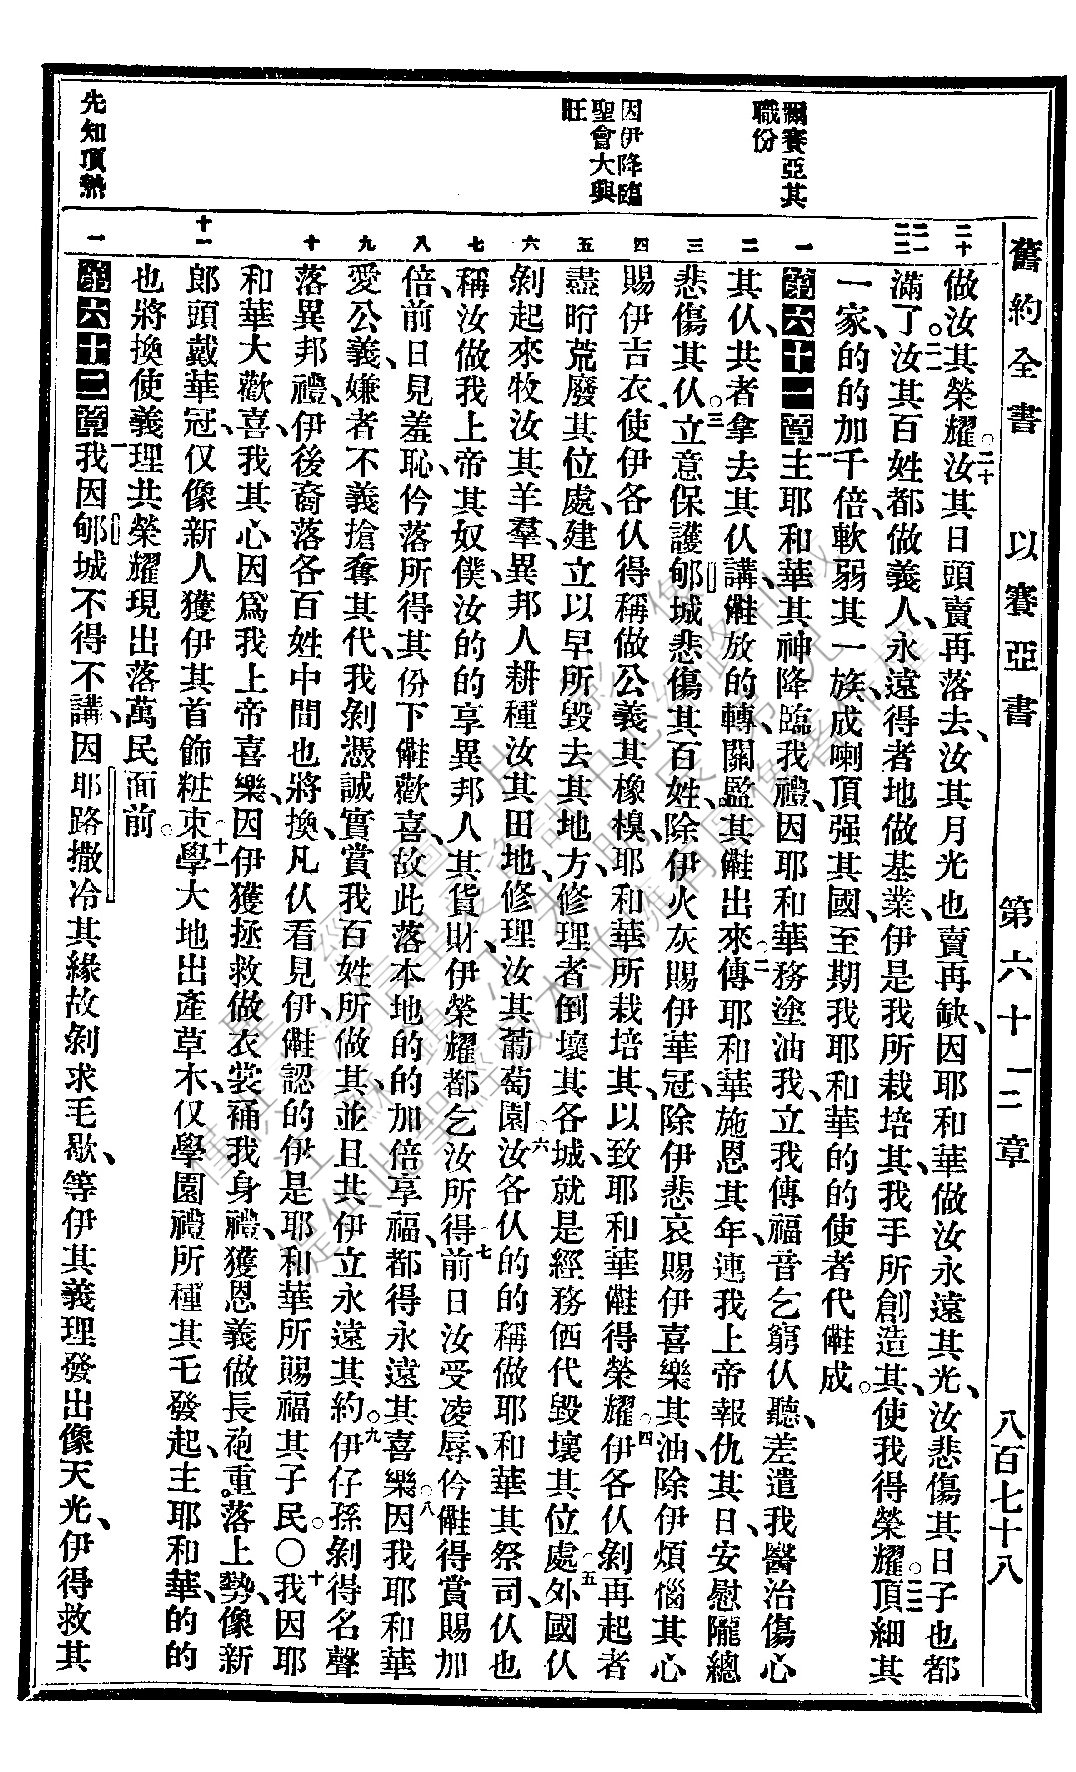 舊約全書 以賽亞書 第六十二章 八百七十八
爾賽亞其
職份
因伊降臨
聖會大興
旺
先知頂熱
二十 二一 二二 一 二 三 四 五 六 七 八 九 十 十一 一
做汝其榮耀。二十汝其日頭賣再落去、汝其月光也賣再缺、因耶和華做汝永遠其光、汝悲傷其日子也都
滿了。二一汝其百姓都做義人、永遠得者地做基業、伊是我所栽培其、我手所創造其、使我得榮耀。二二頂細其
一家、的的加千倍、軟弱其一族、成喇頂强其國、至期我耶和華的的使者代𠆧成。
第六十一章一主耶和華其神降臨我禮、因耶和華務塗油我、立我傳福音乞窮仈聽、差遣我醫治傷心
其仈、共者拿去其仈講𠆧放的、轉關監其𠆧出來、二傳耶和華施恩其年、連我上帝報仇其日、安慰隴總
悲傷其仈。三立意保護郇城悲傷其百姓、除伊火灰賜伊華冠、除伊悲哀賜伊喜樂其油、除伊煩惱其心
賜伊吉衣、使伊各仈得稱做公義其橡樹、耶和華所栽培其、以致耶和華𠆧得榮耀。四伊各仈剝再起者
盡昕荒廢其位處、建立以早所毀去其地方、修理者倒壞其各城、就是經務価代毀壞其位處。五外國仈
剝起來牧汝其羊羣、異邦人耕種汝其田地、修理汝其葡萄園。六汝各仈的的稱做耶和華其祭司、仈也
稱汝做我上帝其奴僕、汝的的享異邦人其貨財、伊榮耀都乞汝所得。七前日汝受凌辱、仱𠆧得賞賜加
倍、前日見羞恥、仱落所得其份下𠆧歡喜、故此落本地的的加倍享福、都得永遠其喜樂。八因我耶和華
愛公義、嫌者不義搶奪其代、我剝憑誠實賞我百姓所做其、並且共伊立永遠其約。九伊仔孫剝得名聲
落異邦禮、伊後裔落各百姓中間也將換、凡仈看見伊、𠆧認的伊是耶和華所賜福其子民。〇十我因耶
和華大歡喜、我其心因爲我上帝喜樂、因伊獲拯救做衣裳補我身禮、獲恩義做長袍重落上勢、像新
郎頭戴華冠、仅像新人獲伊其首飾粧束。十一學大地出產草木、仅學園禮所種其乇發起、主耶和華的的
也將換使義理共榮耀現出落萬民面前。
第六十二章一我因郇城不得不講、因耶路撒冷其緣故剝求毛歇、等伊其義理發出像天光、伊得救其